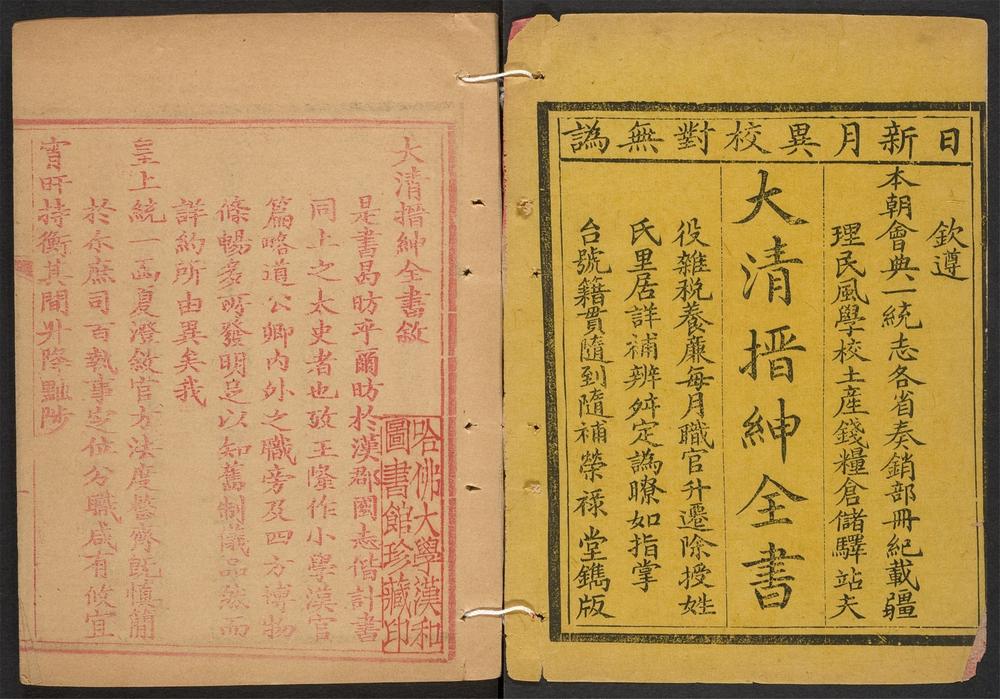 日新月異校對無譌
欽遵
本朝會典一統志各省奏銷部冊紀載疆
理民風學校土産錢糧倉儲驛站夫
大清搢紳全書
役雜税養廉每月職官升遷除授姓
氏里居詳補辨舛定譌瞭如指掌
台號籍貫隨到隨補榮禄堂鐫版
大清搢紳全書敘
是書曷昉乎爾昉於漢郡國志偕計書
同上之太史者也攷王隆作小學漢官
篇略道公卿内外之職旁及四方博物
條暢多所發明足以知舊制儀品然而
詳約所由異矣我
皇上統一函夏澄敘官方法度整齊既慎簡
於尒庶司百執事定位分職咸有攸宜
宵旰持衡其間升降黜陟
哈佛大學漢和
圖書館珍藏印